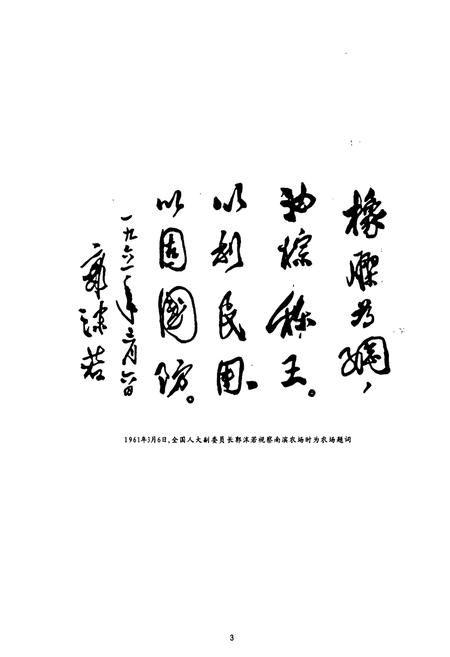 橡胶为纲，
油棕称王。
以利民用、
以固国防。
一九六一年三月六日
郭沫若
1961年3月6日,全国人大副委员长郭沫若视察南滨农场时为农场题词
3